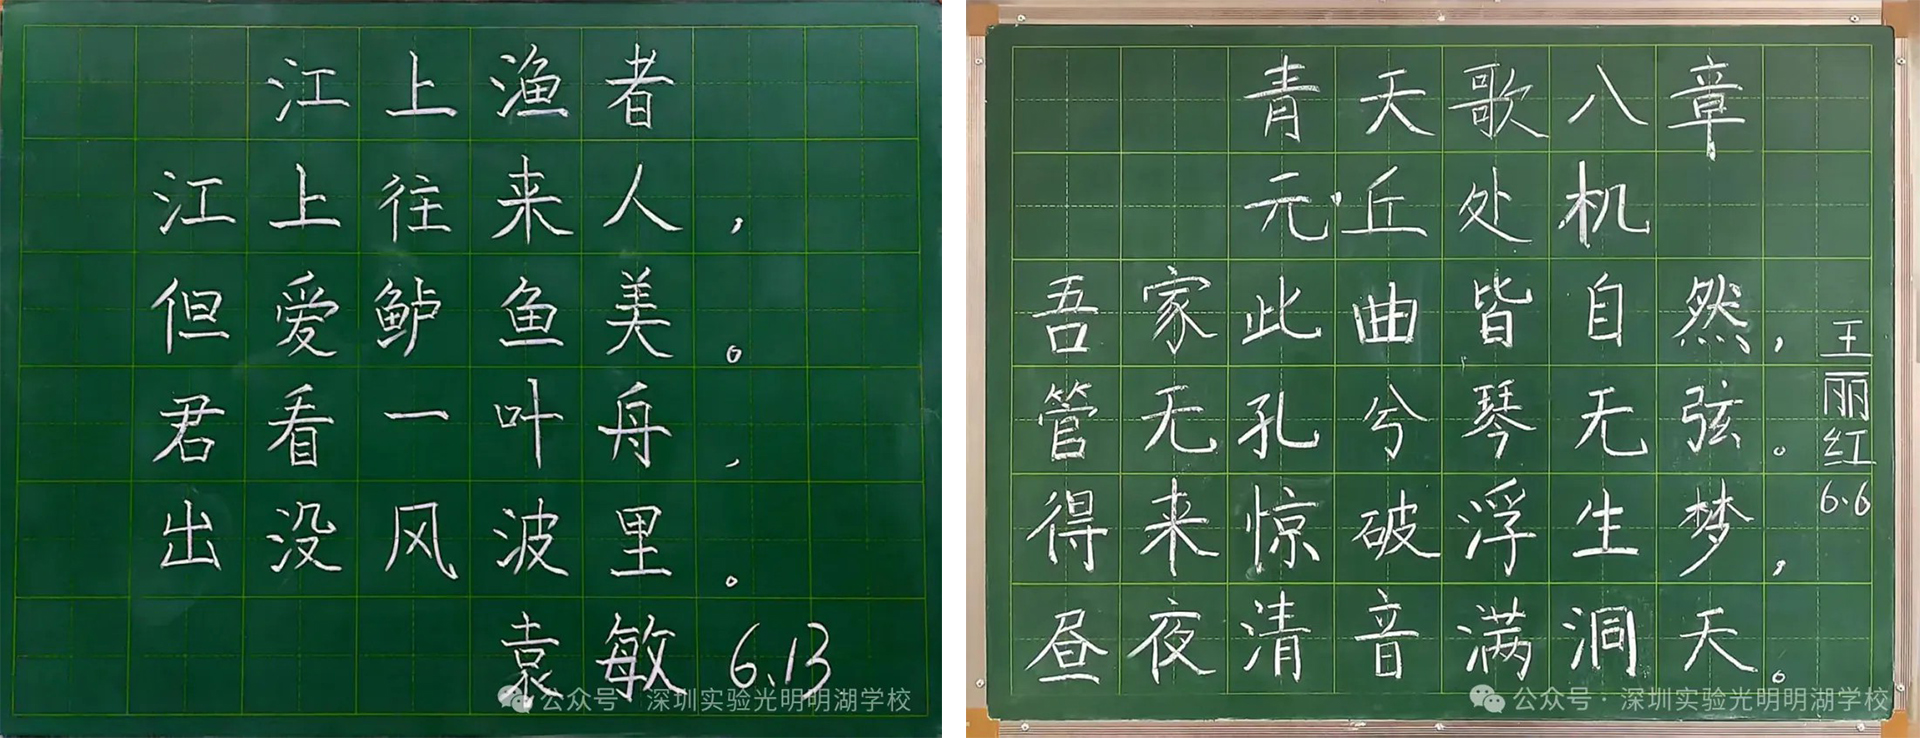 江上渔者
江上往来人，
但爱鲈鱼美。
君看一叶舟，
出没风波里。
袁敏 6.13
公众号·深圳实验光明明湖学校
青天歌八章
元·丘处机
吾家此曲皆自然，
管无孔兮琴无弦。
得来惊破浮生梦，
昼夜清音满洞天。
王丽红
6.6
公众号·深圳实验光明明湖学校